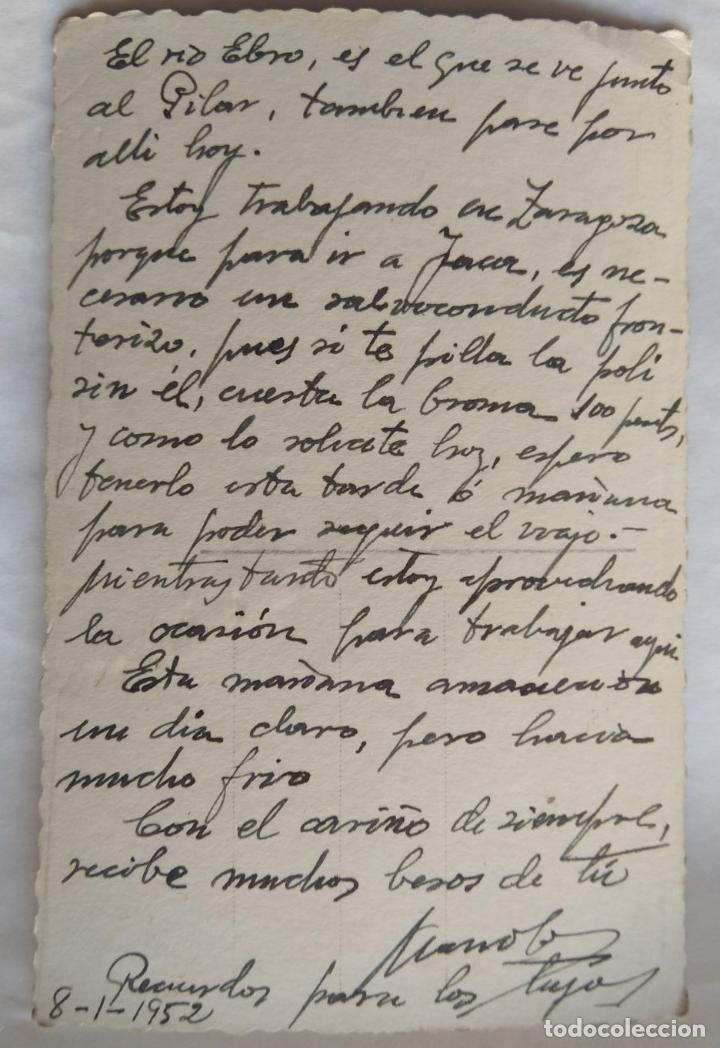 El rio Ebro, es el que se ve junto
al Pilar, tambien pase por
alli hoy.
Estoy trabajando en Zaragoza
porque para ir a Jaca, es ne-
cesario un salvoconducto fron-
terizo, pues si te pilla la poli
sin él, cuesta la broma 100 pests,
y como lo solicite hoy, espero
tenerlo esta tarde ó mañana
para poder seguir el viaje.-
Mientras tanto estoy aprovechando
la ocasión para trabajar aqui
Esta mañana amaneció
un dia claro, pero hacia
mucho frio
Con el cariño de siempre,
recibe muchos besos de tú
Manolo
Recuerdos para los tuyos
8-1-1952
todocoleccion.net